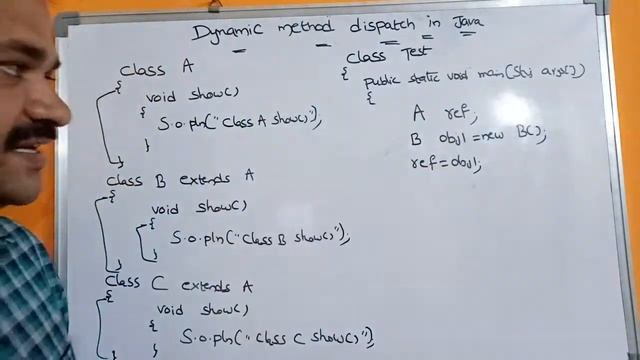 Dynamic method dispatch in Java
class A
{
void show()
{
S.o.pln("class A show()");
}
}
class B extends A
{
void show()
{
S.o.pln("class B show()");
}
}
class C extends A
{
void show()
{
S.o.pln("class C show()")
}
class Test
{
public static void main(Stri args[])
{
A ref;
B obj1 = new B();
ref = obj1;